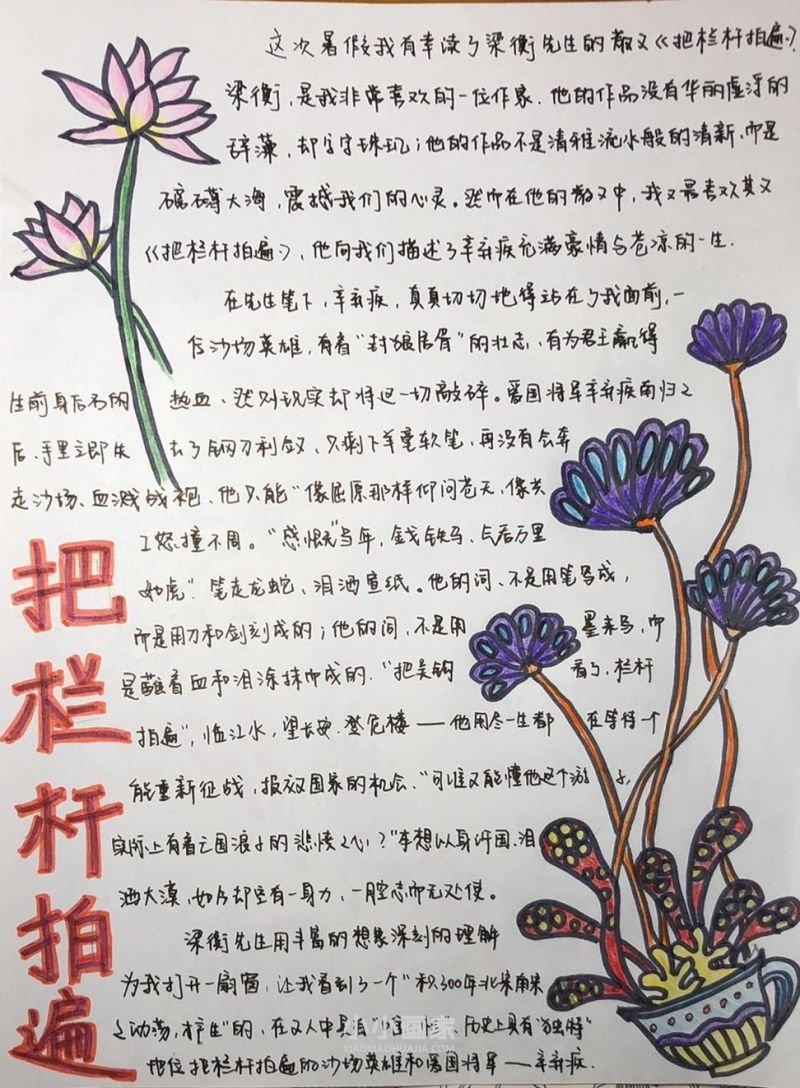 这次暑假我有幸读了梁衡先生的散文《把栏杆拍遍》?
梁衡,是我非常喜欢的一位作家.他的作品没有华丽虚浮的
辞藻,却字字珠玑;他的作品不是清雅流水般的清新,而是
磅礴大海,震撼我们的心灵。然而在他的散文中,我又最喜欢其文
《把栏杆拍遍》,他向我们描述了辛弃疾充满豪情与苍凉的一生.
在先生笔下,辛弃疾,真真切切地得站在了我面前,一
位沙场英雄,有着“封狼居胥”的壮志,有为君王赢得
生前身后名的 热血、然则现实却将这一切敲碎。爱国将军辛弃疾南归之
后、手里立即失 去了钢刀利剑,只剩下羊毫软笔,再没有会奔
走沙场、血溅战袍、他只能“像屈原那样仰问苍天,像共
工怒撞不周。“感恨”当年,金戈铁马、气吞万里
如虎”.笔走龙蛇、泪洒宣纸。他的词、不是用笔写成,
而是用刀和剑刻成的;他的词,不是用 墨来写,而
是蘸着血和泪涂抹而成的.“把吴钩 看了,栏杆
拍遍”,临江水,望长安.登危楼——他用尽一生都 在等待一个
能重新征战,报效国家的机会.“可谁又能懂他这个游 子,
实际上有着亡国浪子的悲愤之心?”本想以身许国.泪
洒大漠,如今却空有一身力,一腔志而无处使。
梁衡先生用丰富的想象深刻的理解
为我打开一扇窗,让我看到了一个“积300年北宋南宋
之动荡,才产生”的,在文人中具有 历史上具有“独特”
地位把栏杆拍遍的沙场英雄和爱国将军——辛弃疾.
把栏杆拍遍
小小画家
XIAOXIAOHUAJIA.COM